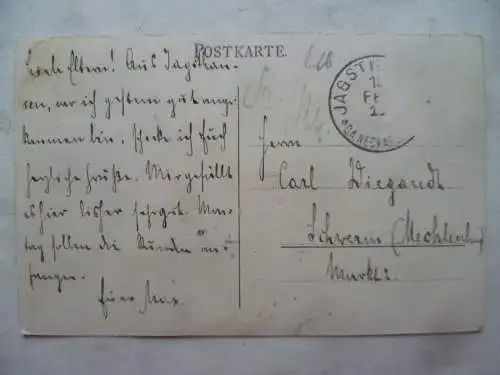 POSTKARTE
Liebe Eltern! Aus Jagsthau-
sen, wo ich gestern gut ange-
kommen bin, schicke ich Euch
herzliche Grüße. Mir gefällt
es hier bisher sehr gut. Mon-
tag sollen die Stunden an-
fangen.
Euer Max.
JAGSTH
FE
Herrn
Carl Wiegandt
Schwerin (Mecklenburg)
Markt 2.